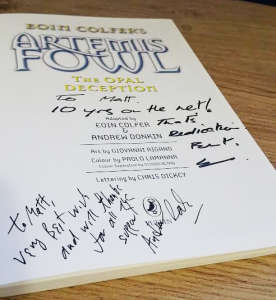 EOIN COLFER'S
ARTEMIS
FOWL
THE OPAL
DECEPTION
To Matt.
10 yrs on the net!
That's
Dedication
Adapted by
EOIN COLFER
&
ANDREW DONKIN
Art by GIOVANNI RIGANO
Colour by PAOLO LAMANNA
Lettering by CHRIS DICKEY
To Matt,
Very Best Wishes
and with thanks
for all the
support